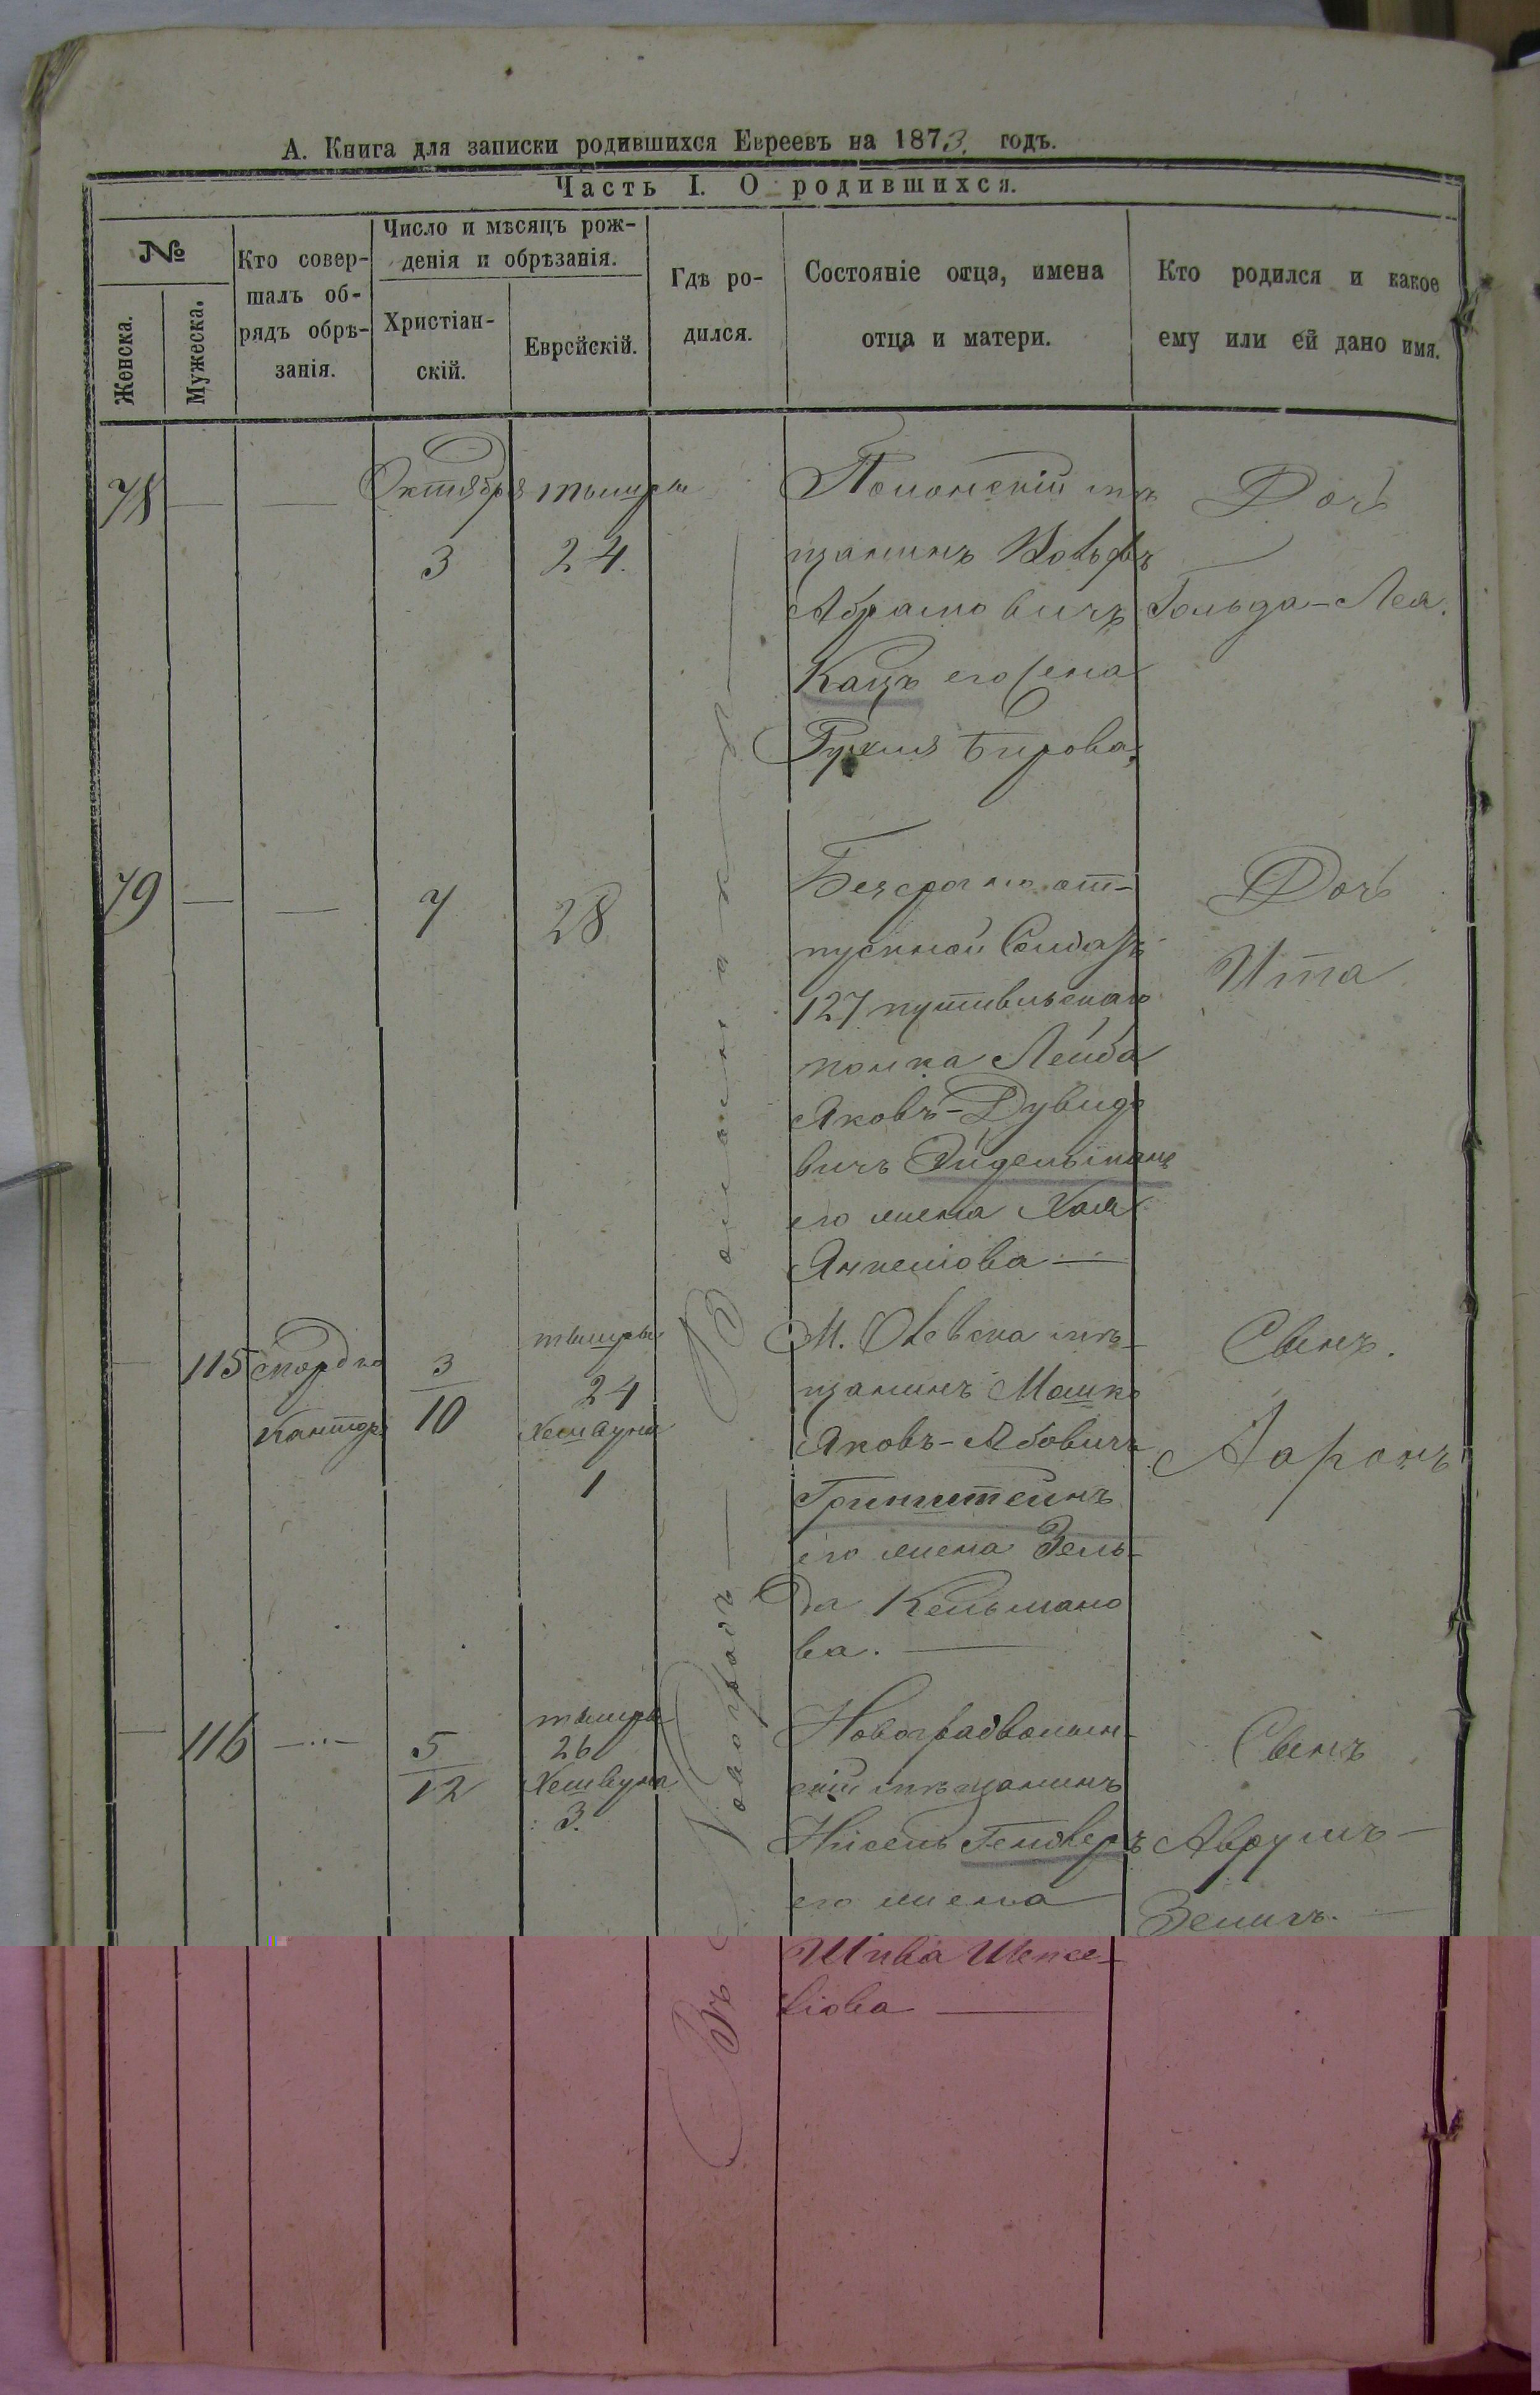 А. Книга для записки родившихся Евреевъ на 1873. годъ.
Часть I. О родившихся.
№
Женска.
Мужеска.
Кто совер-
шалъ об-
рядъ обрѣ-
занія.
Число и мѣсяцъ рож-
денія и обрѣзанія.
Христіан-
скій.
Еврейскій.
Гдѣ ро-
дился.
Состояніе отца, имена
отца и матери.
Кто родился и какое
ему или ей дано имя.
Въ Новоградъ — Волынскѣ —
78 — —
Октября
3
тышры
24.
мѣ
щанинъ Вольфъ
Абрамовичъ
Кацъ его жена
Дочь
Гольда-Лея.
79 — —
7
28
Безсрочно от-
пускной Солдатъ
127 путивльскаго
полка Лейба
Яковъ-Дувидо
вичъ Эйдельманъ
его жена Хая
Янкелiова —
Дочь
Ита
— 115
Канторъ
3
10
тышры
24
Хешвуна
1
М. Олевска мѣ-
щанинъ Мошко
Яковъ-Абовичъ
Гринштейнъ
его жена Зель-
да Кельмано
ва. —
Сынъ.
Ааронъ
— 116 —
5
12
тышры
26
Хешвуна
3.
Новоградволын-
скій мѣщанинъ
Нисель
его жена
Шива Шепсе-
лiова —
Сынъ
Аврумъ —
Зелигъ. —